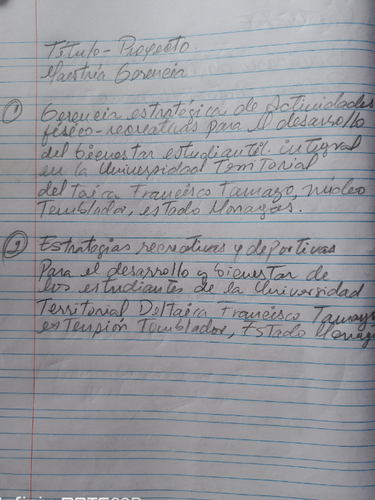 Título - Proyecto.
Maestría Gerencia
① Gerencia estratégica de actividades
físico-recreativas para el desarrollo
del bienestar estudiantil integral
en la Universidad Territorial
deltaica Francisco Tamayo, núcleo
Temblador, estado Monagas.
② Estrategias recreativas y deportivas
Para el desarrollo y bienestar de
los estudiantes de la Universidad
Territorial Deltaica Francisco Tamayo
extensión Temblador, Estado Monagas